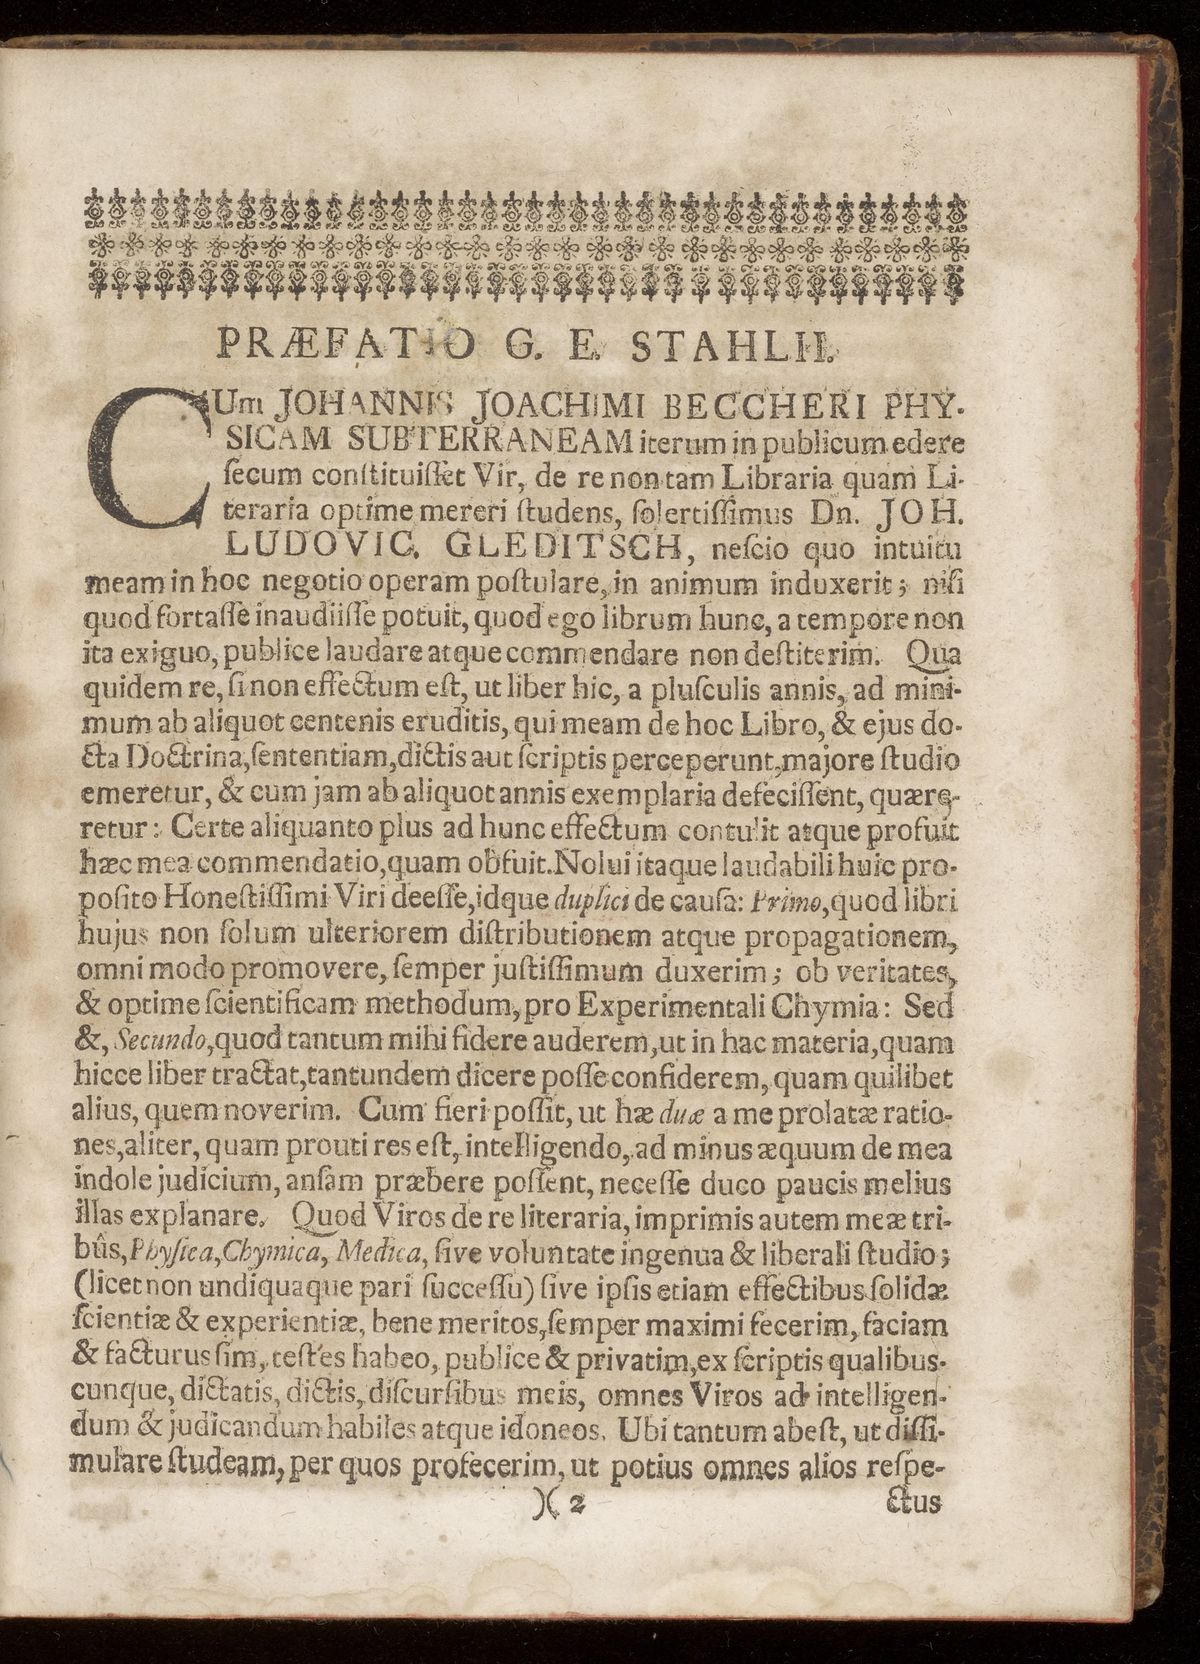 PRÆFATIO G. E. STAHLII.
CUm JOHANNIS JOACHIMI BECCHERI PHY-
SICAM SUBTERRANEAM iterum in publicum edere
ſecum conſtituiſſet Vir, de re non tam Libraria quam Li-
teraria optime mereri ſtudens, ſolertiſſimus Dn. JOH.
LUDOVIC. GLEDITSCH, neſcio quo intuitu
meam in hoc negotio operam poſtulare, in animum induxerit; niſi
quod fortaſſe inaudiiſſe potuit, quod ego librum hunc, a tempore non
ita exiguo, publice laudare atque commendare non deſtiterim. Qua
quidem re, ſi non effectum eſt, ut liber hic, a pluſculis annis, ad mini-
mum ab aliquot centenis eruditis, qui meam de hoc Libro, & ejus do-
cta Doctrina, ſententiam, dictis aut ſcriptis perceperunt, majore ſtudio
emeretur, & cum jam ab aliquot annis exemplaria defeciſſent, quære-
retur: Certe aliquanto plus ad hunc effectum contulit atque profuit
hæc mea commendatio, quam obfuit. Nolui itaque laudabili huic pro-
poſito Honeſtiſſimi Viri deeſſe, idque duplici de cauſa: Primo, quod libri
hujus non ſolum ulteriorem diſtributionem atque propagationem,
omni modo promovere, ſemper juſtiſſimum duxerim; ob veritates,
& optime ſcientificam methodum, pro Experimentali Chymia: Sed
&, Secundo, quod tantum mihi fidere auderem, ut in hac materia, quam
hicce liber tractat, tantundem dicere poſſe confiderem, quam quilibet
alius, quem noverim. Cum fieri poſſit, ut hæ duæ a me prolatæ ratio-
nes, aliter, quam prouti res eſt, intelligendo, ad minus æquum de mea
indole judicium, anſam præbere poſſent, neceſſe duco paucis melius
illas explanare. Quod Viros de re literaria, imprimis autem meæ tri-
bûs, Phyſica, Chymica, Medica, ſive voluntate ingenua & liberali ſtudio;
(licet non undiquaque pari ſucceſſu) ſive ipſis etiam effectibus ſolidæ
ſcientiæ & experientiæ, bene meritos, ſemper maximi fecerim, faciam
& facturus ſim, teſtes habeo, publice & privatim, ex ſcriptis qualibus-
cunque, dictatis, dictis, diſcurſibus meis, omnes Viros ad intelligen-
dum & judicandum habiles atque idoneos. Ubi tantum abeſt, ut diſſi-
mulare ſtudeam, per quos profecerim, ut potius omnes alios reſpe-
)( 2 ctus